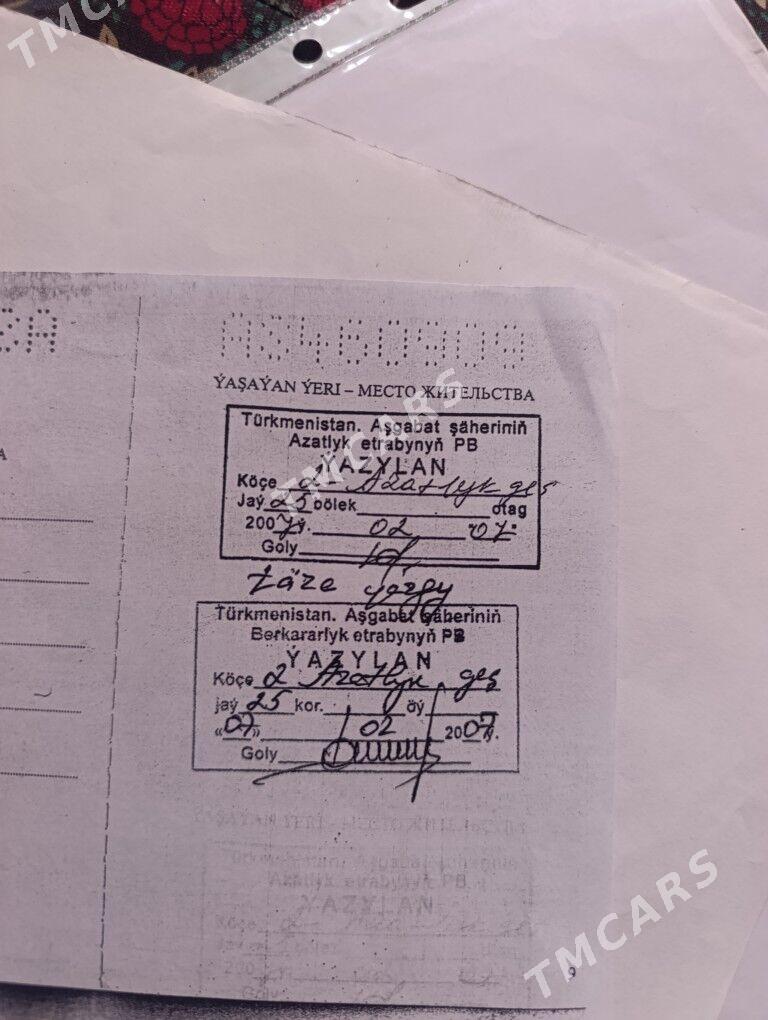 TMCARS
AS460909
ÝAŞAÝAN ÝERI – МЕСТО ЖИТЕЛЬСТВА
Türkmenistan. Aşgabat şäheriniň
Azatlyk etrabynyň PB
ÝAZYLAN
Köçe 2 Azatlyk geç
Jaý 25 bölek otag
2007ý. 02 "07"
Goly
täze ýazgy
Türkmenistan. Aşgabat şäheriniň
Berkararlyk etrabynyň PB
ÝAZYLAN
Köçe 2 Azatlyk geç
jaý 25 kor. öý
«07» 02 2007ý.
Goly
TMCARS
Azatlyk etrabynyň PB
ÝAZYLAN
Köçe
200
Goly
9
TMCARS